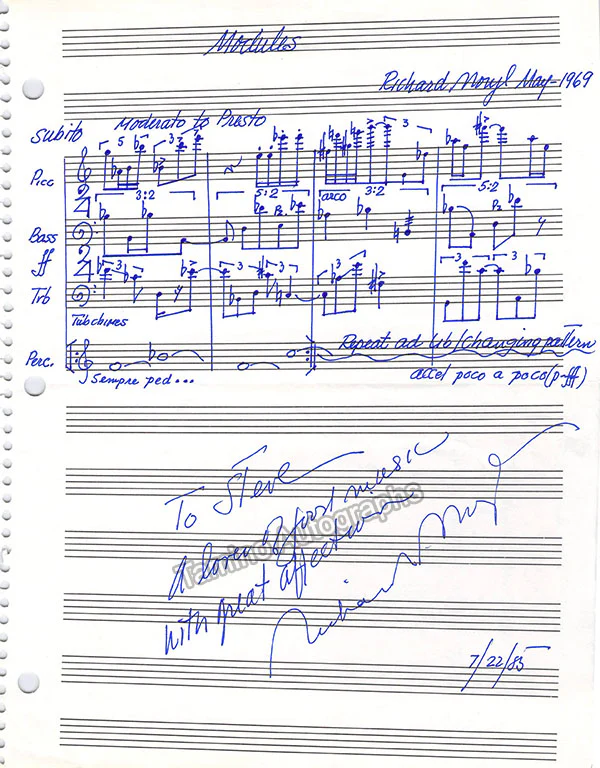 Modules
Richard Moryl May-1969
Subito Moderato to Presto
5 3 3
Picc
3:2 5:2 arco 3:2 5:2
Bass Pz. Pz
ff
3 3 3 3 3
Trb
Tub chimes
Repeat ad lib/changing pattern
Perc.
Sempre ped... accel poco a poco (p-fff)
To Steve
A lover of good music
with great affection
Tamino Autographs
Richard Moryl
7/22/85